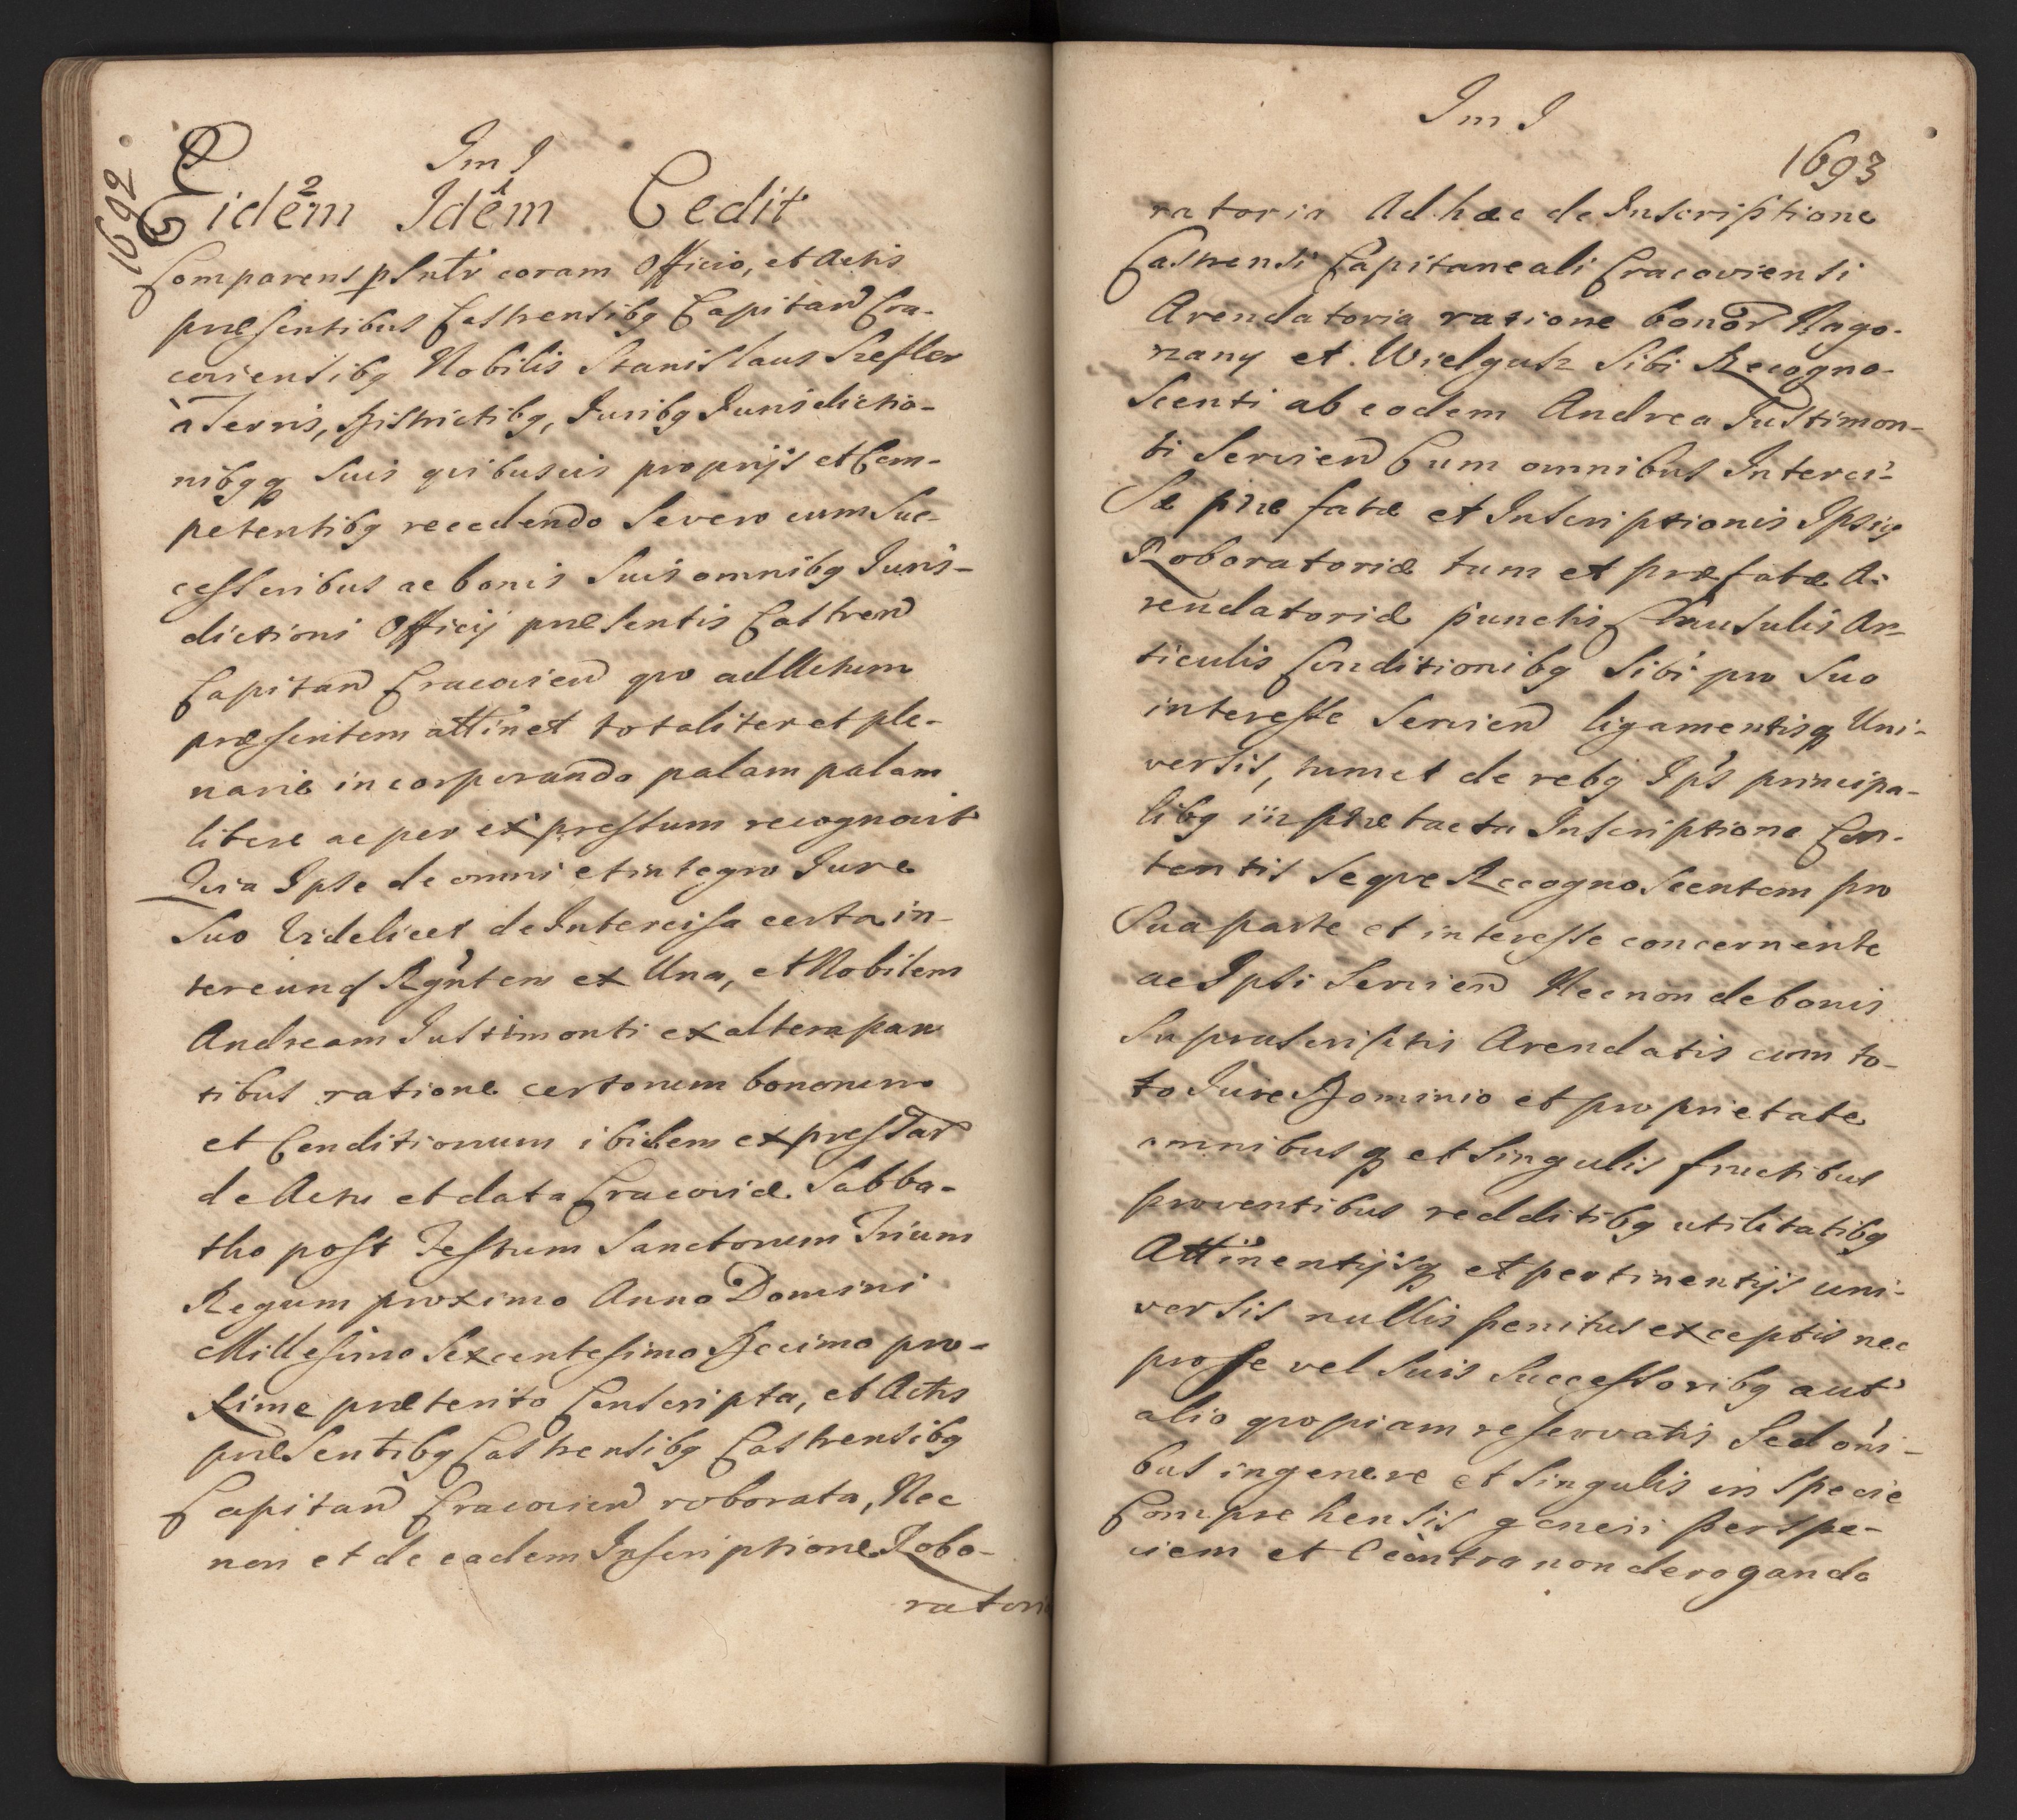 Im I
1692
Eidem Idem Cedit
Comparens psntr coram Officio, et Actis
præsentibus Castrensibq Capitan Cra-
coviensibq Nobilis Stanislaus Szesler
à Terris, Districtibq, Juribq Jurisdictio-
nibqq suis quibusvis proprijs et Com-
petentibq recedendo Se vero cum Suc-
cessoribus ac bonis Suis omnibq Juris-
dictioni Officij præsentis Castren
Capitan Cracovien quo ad Actum
præsentem attinet totaliter et ple-
narie incorporando palam palam
libere ac per expressum recognovit
Quia Ipse de omni et integro Jure
Suo Videlicet de Intercisa certa in-
ter eunq Rgnten ex Una, et Nobilem
Andream Justimonti ex altera par
tibus ratione certorum bonorum
et Conditionum ibidem expressar
de Actu et data Cracoviæ Sabba-
tho post Festum Sanctorum Trium
Regum proximo Anno Domini
Millesimo Sexcentesimo Decimo pro-
xime præterito Conscripta, et Actis
præsentibq Castrensibq Castrensibq
Capitan Cracovien roborata, Nec
non et de eadem Inscriptione Robo-
ratori
Im I
1693
ratoria Ad hæc de Inscriptione
Castrensi Capitaneali Cracoviensi
Arendatoria ratione bonor Nago-
rzany et Wielgusz Sibi Recogno-
scenti ab eodem Andrea Justimon-
ti Servien Cum omnibus Interci-
Sæ præfatæ et Inscriptionis Ipsiq
Roboratoriæ tum et præfatæ A-
rendatoriæ punctis Clausulis Ar-
ticulis Conditionibq Sibi pro Suo
interesse Servien ligamentisq Uni-
versis, tum et de rebq Ips principa-
libq in prætacta Inscriptione Con-
tentis Seque Recognoscentem pro
Sua parte et interesse concernente
ac Ipsi Servien Nec non de bonis
Suprascriptis Arendatis cum to-
to Jure Dominio et proprietate
omnibusq et Singulis fructibus
proventibus redditibq utilitatibq
Attinentijsq et pertinentijs uni-
versis nullis penitus exceptis nec
pro Se vel Suis Successoribq aut
alio quopiam reservatis Sed oni-
bus in genere et Singulis in Specie
Comprehensis generi per Spe-
ciem et Ccontra non derogando